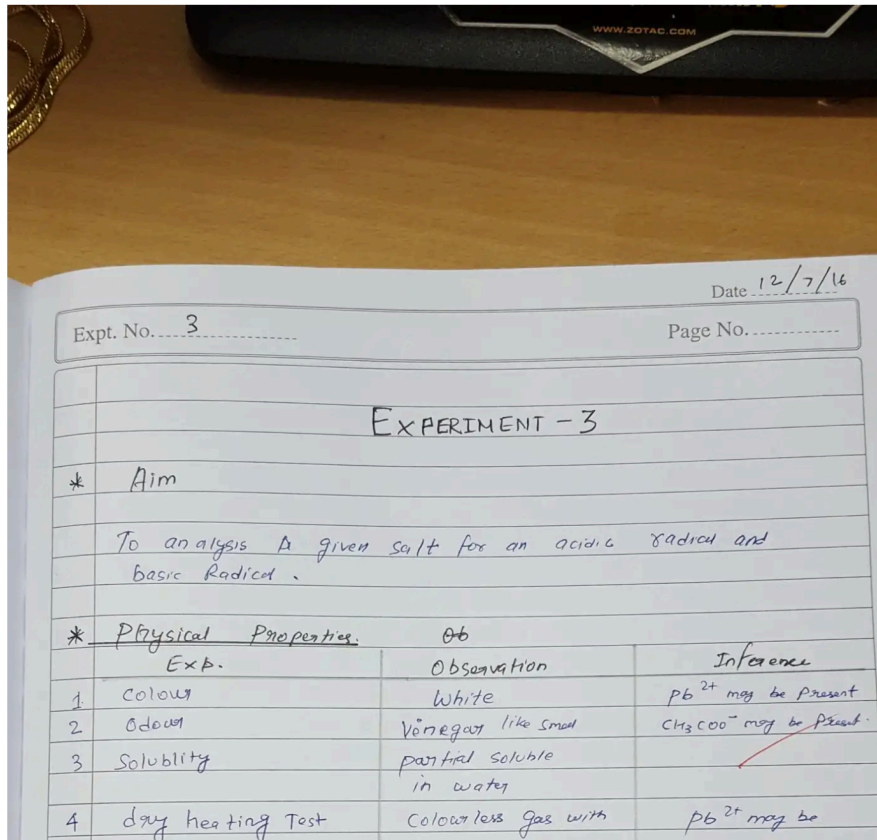 WWW.ZOTAC.COM
Date 12/7/16
Expt. No. 3
Page No.
EXPERIMENT - 3
* Aim
To analysis A given salt for an acidic radical and
basic Radical .
* Physical Properties. Ob
Exp. Observation Inference
1. Colour White Pb2+ may be Present
2 Odour Vinegar like smell CH3COO- may be Present.
3 Solublity partial soluble
in water
4 dry heating Test Colourless gas with Pb2+ may be